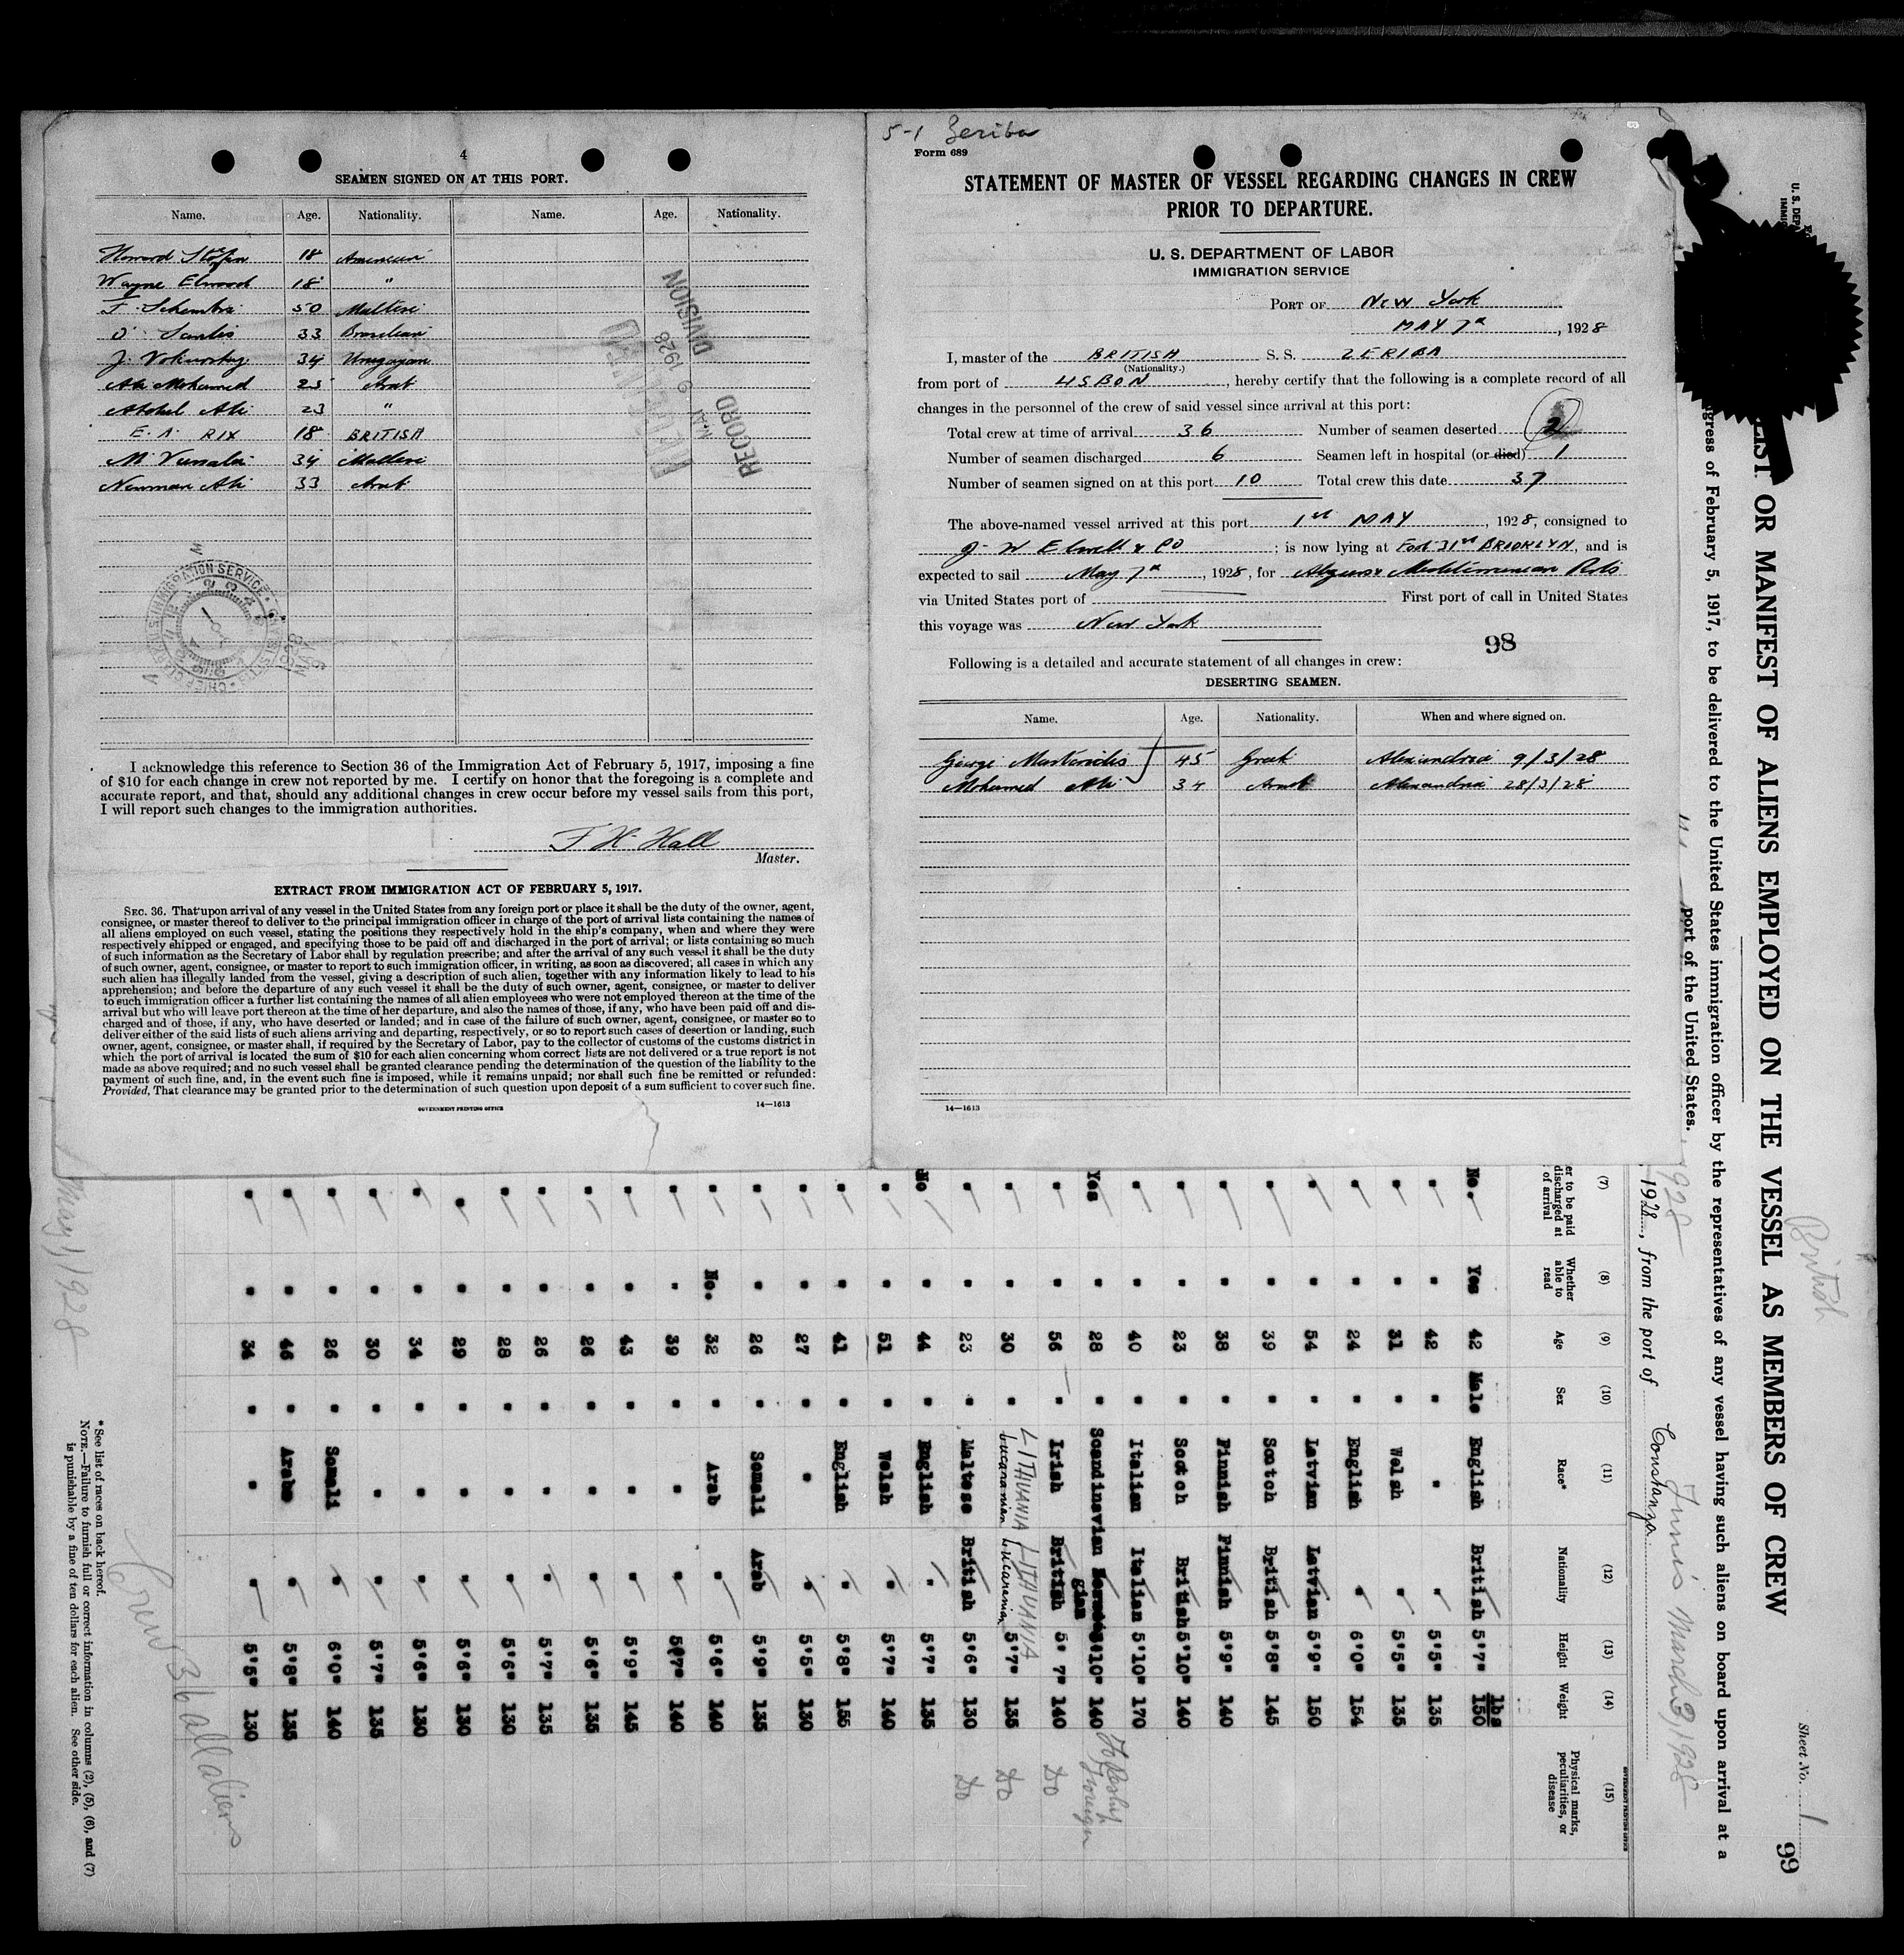 4
SEAMEN SIGNED ON AT THIS PORT.
Name. Age. Nationality. Name. Age. Nationality.
Howard 18 American
Wayne Elwood 18 "
F. Schembri 50 Maltese
33 Brazilian
J. 34
Ali Mohamed 25 Arab
Abdul Ali 23 "
E. A. RIX 18 BRITISH
M 34 Maltese
Newman Ali 33 Arab
RECORD DIVISION
MAY 9 1928
I acknowledge this reference to Section 36 of the Immigration Act of February 5, 1917, imposing a fine
of $10 for each change in crew not reported by me. I certify on honor that the foregoing is a complete and
accurate report, and that, should any additional changes in crew occur before my vessel sails from this port,
I will report such changes to the immigration authorities.
F H Hall
Master.
EXTRACT FROM IMMIGRATION ACT OF FEBRUARY 5, 1917.
SEC. 36. That upon arrival of any vessel in the United States from any foreign port or place it shall be the duty of the owner, agent,
consignee, or master thereof to deliver to the principal immigration officer in charge of the port of arrival lists containing the names of
all aliens employed on such vessel, stating the positions they respectively hold in the ship's company, when and where they were
respectively shipped or engaged, and specifying those to be paid off and discharged in the port of arrival; or lists containing so much
of such information as the Secretary of Labor shall by regulation prescribe; and after the arrival of any such vessel it shall be the duty
of such owner, agent, consignee, or master to report to such immigration officer, in writing, as soon as discovered, all cases in which any
such alien has illegally landed from the vessel, giving a description of such alien, together with any information likely to lead to his
apprehension; and before the departure of any such vessel it shall be the duty of such owner, agent, consignee, or master to deliver
to such immigration officer a further list containing the names of all alien employees who were not employed thereon at the time of the
arrival but who will leave port thereon at the time of her departure, and also the names of those, if any, who have been paid off and dis-
charged and of those, if any, who have deserted or landed; and in case of the failure of such owner, agent, consignee, or master so to
deliver either of the said lists of such aliens arriving and departing, respectively, or so to report such cases of desertion or landing, such
owner, agent, consignee, or master shall, if required by the Secretary of Labor, pay to the collector of customs of the customs district in
which the port of arrival is located the sum of $10 for each alien concerning whom correct lists are not delivered or a true report is not
made as above required; and no such vessel shall be granted clearance pending the determination of the question of the liability to the
payment of such fine, and, in the event such fine is imposed, while it remains unpaid; nor shall such fine be remitted or refunded:
Provided, That clearance may be granted prior to the determination of such question upon deposit of a sum sufficient to cover such fine.
GOVERNMENT PRINTING OFFICE 14—1613
5-1 Zeriba
Form 689
STATEMENT OF MASTER OF VESSEL REGARDING CHANGES IN CREW
PRIOR TO DEPARTURE.
U. S. DEPARTMENT OF LABOR
IMMIGRATION SERVICE
PORT OF New York
MAY 7th, 1928
I, master of the BRITISH S. S. ZERIBA
(Nationality.)
from port of LISBON, hereby certify that the following is a complete record of all
changes in the personnel of the crew of said vessel since arrival at this port:
Total crew at time of arrival 36 Number of seamen deserted 2
Number of seamen discharged 6 Seamen left in hospital (or died) 1
Number of seamen signed on at this port 10 Total crew this date 37
The above-named vessel arrived at this port 1st MAY, 1928, consigned to
J. W Elwell & CO; is now lying at Foot 31st BROOKLYN, and is
expected to sail May 7th, 1928, for Mediterranean Ports
via United States port of First port of call in United States
this voyage was New York
98
Following is a detailed and accurate statement of all changes in crew:
DESERTING SEAMEN.
Name. Age. Nationality. When and where signed on.
George 45 Greek Alexandria 9/3/28
Mohamed Ali 34 Arab Alexandria 28/3/28
14—1613
British
Sheet No. 1
99
LIST OR MANIFEST OF ALIENS EMPLOYED ON THE VESSEL AS MEMBERS OF CREW
ngress of February 5, 1917, to be delivered to the United States immigration officer by the representatives of any vessel having such aliens on board upon arrival at a
port of the United States.
Tunis March 31 1928
1928, from the port of Constanza
(7) (8) (9) (10) (11) (12) (13) (14) (15)
er to be paid discharged at of arrival Whether able to read Age Sex Race* Nationality Height Weight Physical marks, peculiarities, or disease
lbs
No. Yes 42 Male English British 5'7" 150
" " 42 " " " 5'5" 135
" " 31 " Welsh " 5'5" 135
" " 24 " English " 6'0" 154
" " 54 " Latvian Latvian 5'9" 150
" " 39 " Scotch British 5'8" 145
" " 38 " Finnish Finnish 5'9" 140
" " 23 " Scotch British 5'10" 140
" " 40 " Italian Italian 5'10" 170
Yes " 28 " Scandinavian Norwegian 5'10" 140 To Reship Foreign
" " 56 " Irish British 5'7" 140 Do
" " 30 " LITHUANIA LITHUANIA 5'7" 135 Do
" " 23 " Maltese British 5'6" 130 Do
No " 44 " English " 5'7" 135
" " 51 " Welsh " 5'7" 140
" " 41 " English " 5'8" 155
" " 27 " " " 5'5" 130
" " 26 " Somali Arab 5'9" 135
" No. 32 " Arab " 5'6" 140
" " 39 " " " 5'7" 140
" " 43 " " " 5'9" 145
" " 26 " " " 5'6" 135
" " 26 " " " 5'7" 135
" " 28 " " " 5'6" 130
" " 29 " " " 5'6" 130
" " 34 " " " 5'6" 130
" " 30 " " " 5'7" 135
" " 26 " Somali " 6'0" 140
" " 46 " Arabs " 5'8" 135
" " 34 " " " 5'5" 130
Crew 36 all aliens
* See list of races on back hereof.
NOTE.—Failure to furnish full or correct information in columns (2), (5), (6), and (7)
is punishable by a fine of ten dollars for each alien. See other side.
May 1, 1928